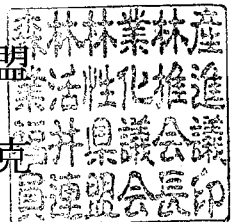 盟
克
森林林業林産
業活性化推進
福井県議会議
員連盟会長印